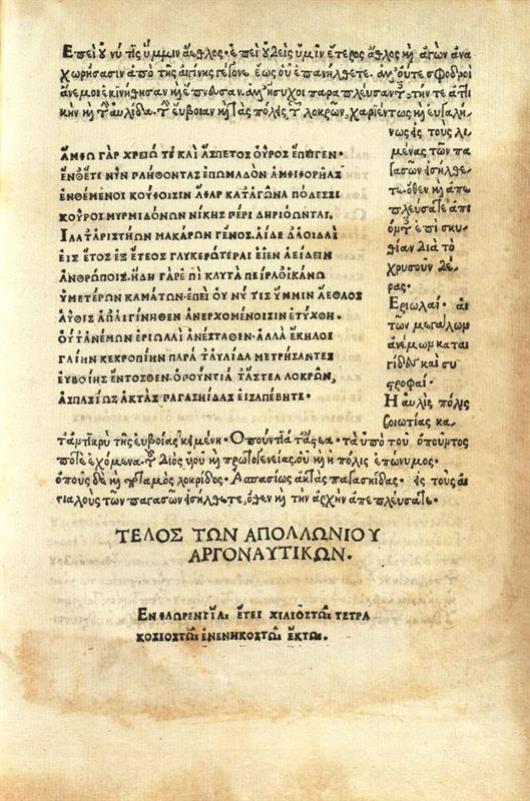 Ἐπεὶ οὔ νύ τις ὔμμιν ἄεθλος· ἐπεὶ οὐδεὶς ὑμῖν ἕτερος ἆθλος καὶ ἀγὼν ἀνα
χωρήσασιν ἀπὸ τῆς αἰγίνης γέγονε ἕως οὗ ἐπανήλθετε. ἀλλ' οὔτε σφοδροὶ
ἄνεμοι ἐκινήθησαν καὶ ἔπνευσαν. ἀλλ' ἥσυχοι παραπλεύσαντες τήν τε ἀττι
κὴν καὶ τὴν αὐλίδα. τὴν εὔβοιαν καὶ τὰς πόλεις τῶν λοκρῶν, χαριέντως καὶ εὐγαλή-
ΑΜΦΩ ΓΑΡ ΧΡΕΙΩ ΤΕ ΚΑΙ ΑΣΠΕΤΟΣ ΟΥΡΟΣ ΕΠΕΙΓΕΝ·
ΕΝΘΕΤΙ ΝΥΝ ΠΛΗΘΟΝΤΑΣ ΕΠΩΜΑΔΟΝ ΑΜΦΙΦΟΡΗΑΣ
ΕΝΘΕΜΕΝΟΙ ΚΟΥΦΟΙΣΙΝ ΑΦΑΡ ΚΑΤ ΑΓΩΝΑ ΠΟΔΕΣΣΙ
ΚΟΥΡΟΙ ΜΥΡΜΙΔΟΝΩΝ ΝΙΚΗΣ ΠΕΡΙ ΔΗΡΙΟΩΝΤΑΙ.
ΙΛΑΤ' ΑΡΙΣΤΗΩΝ ΜΑΚΑΡΩΝ ΓΕΝΟΣ. ΑΙΔΕ Δ' ΑΟΙΔΑΙ
ΕΙΣ ΕΤΟΣ ΕΞ ΕΤΕΟΣ ΓΛΥΚΕΡΩΤΕΡΑΙ ΕΙΕΝ ΑΕΙΔΕΙΝ
ΑΝΘΡΩΠΟΙΣ. ΗΔΗ ΓΑΡ ΕΠΙ ΚΛΥΤΑ ΠΕΙΡΑΘ' ΙΚΑΝΩ
ΥΜΕΤΕΡΩΝ ΚΑΜΑΤΩΝ· ΕΠΕΙ ΟΥ ΝΥ ΤΙΣ ΥΜΜΙΝ ΑΕΘΛΟΣ
ΑΥΘΙΣ ΑΠ' ΑΙΓΙΝΗΘΕΝ ΑΝΕΡΧΟΜΕΝΟΙΣΙΝ ΕΤΥΧΘΗ.
ΟΥΤ' ΑΝΕΜΩΝ ΕΡΙΩΛΑΙ ΑΝΕΣΤΑΘΕΝ· ΑΛΛΑ ΕΚΗΛΟΙ
ΓΑΙΗΝ ΚΕΚΡΟΠΙΗΝ ΠΑΡΑ Τ' ΑΥΛΙΔΑ ΜΕΤΡΗΣΑΝΤΕΣ
ΕΥΒΟΙΗΣ ΕΝΤΟΣΘΕΝ· ΟΠΟΥΝΤΙΑ Τ' ΑΣΤΕΑ ΛΟΚΡΩΝ,
ΑΣΠΑΣΙΩΣ ΑΚΤΑΣ ΠΑΓΑΣΗΙΔΑΣ ΕΙΣΑΠΕΒΗΤΕ·
νως εἰς τοὺς λι
μένας τῶν πα
γασῶν εἰσήλθε
τε. ὅθεν καὶ ἀπε
πλεύσατε ἀπὸ
τὴν ἐπὶ σκυ
θίαν διὰ τὸ
χρυσοῦν δέ-
ρας·
Ἐριωλαί· αἱ
τῶν μεγάλων
ἀνέμων καται
γίδες καὶ συ
στροφαί·
Ἡ αὐλὶς πόλις
βοιωτίας κα-
τ' ἀντικρὺ τῆς εὐβοίας κειμένη· Ὀπούντιά τ' ἄστεα· τὰ ὑπὸ τοῦ ὀποῦντος
ποτὲ ἐχόμενα. τοῦ διὸς υἱοῦ καὶ πρωτογενείας. οὗ καὶ ἡ πόλις ἐπώνυμος·
ὀποῦς δὲ καὶ ποταμὸς λοκρίδος· Ἀσπασίως ἀκτὰς παγασηίδας· εἰς τοὺς αἰ
γιαλοὺς τῶν παγασῶν εἰσήλθετε, ὅθεν καὶ τὴν ἀρχὴν ἀπεπλεύσατε·
ΤΕΛΟΣ ΤΩΝ ΑΠΟΛΛΩΝΙΟΥ
ΑΡΓΟΝΑΥΤΙΚΩΝ.
ΕΝ ΦΛΩΡΕΝΤΙΑΙ ΕΤΕΙ ΧΙΛΙΟΣΤΩΙ ΤΕΤΡΑ
ΚΟΣΙΟΣΤΩΙ ΕΝΕΝΗΚΟΣΤΩΙ ΕΚΤΩΙ.